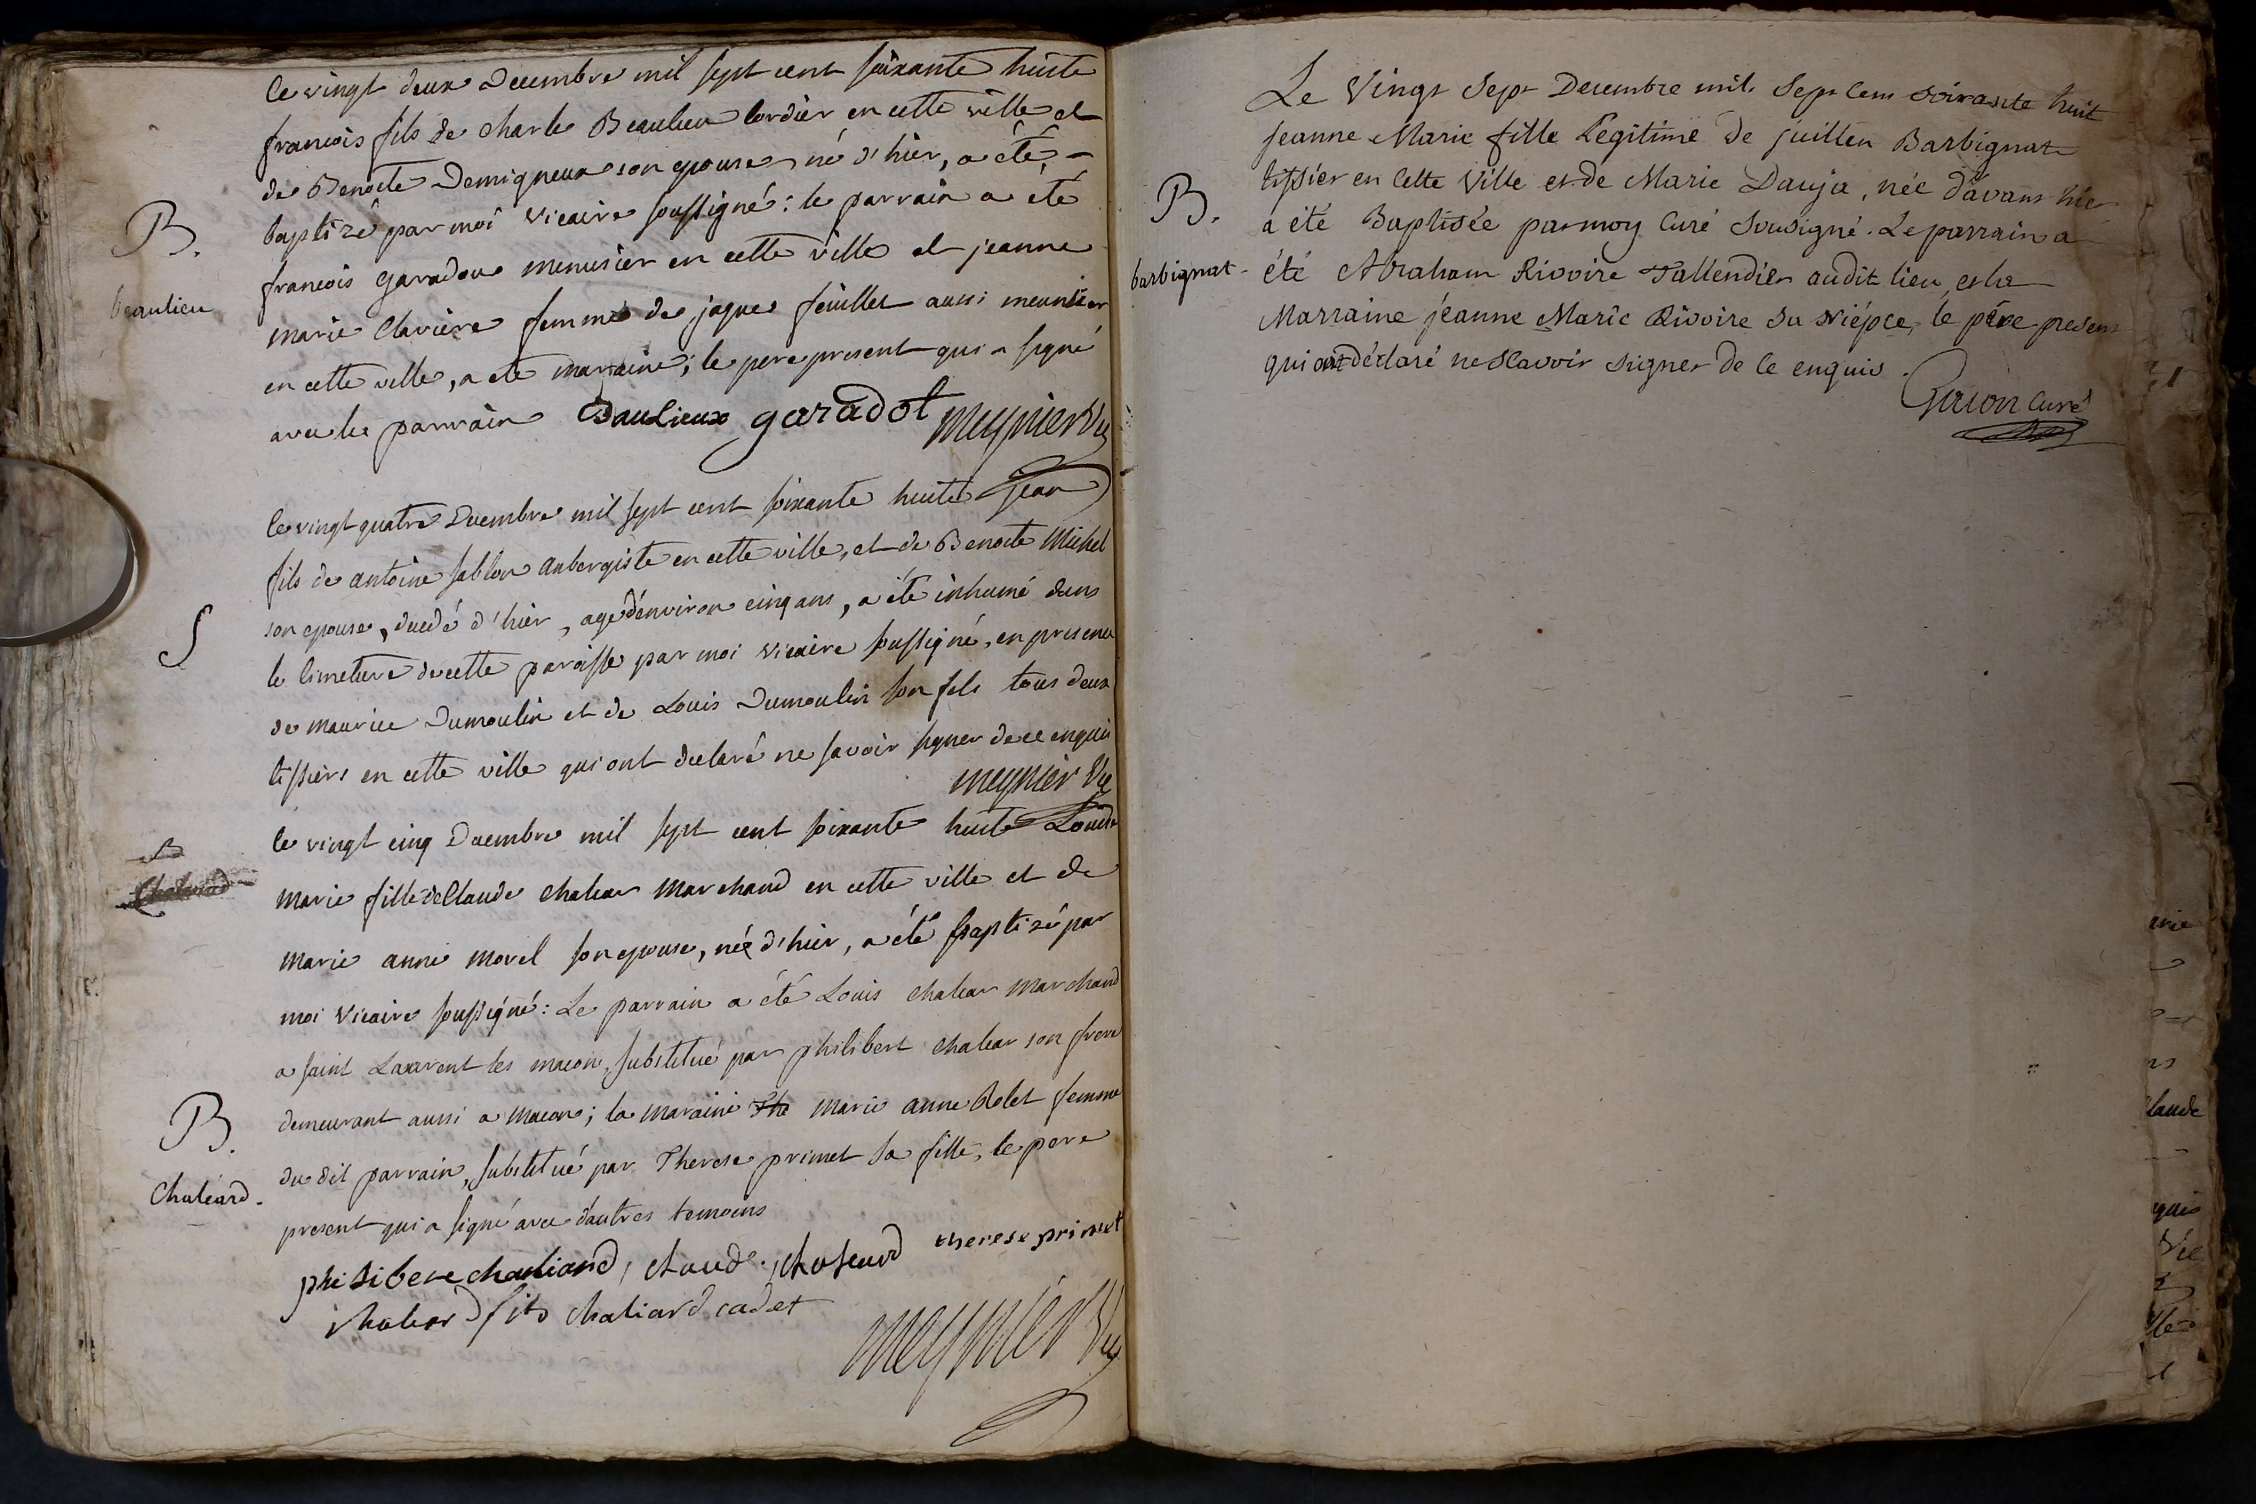 le vingt deux Decembre mil sept cent soixante huite
francois fils de charle Beaulieu cordier en cette ville et
de Benoite Demigneux son epouse, né d'hier, a été
B.
baptizé par moi vicaire soussigné : le parrain a été
francois garadou menusier en cette ville et jeanne
beaulieu
marie Claviere femme de jaque feuillet aussi meunsier
en cette ville, a eté marraine ; le pere present qui a signé
avec le parrain Baulieux garadot meynier Vic
le vingt quatre Decembre mil sept cent soixante huite jean
fils de antoine sablon aubergiste en cette ville, et de Benoite Michel
son epouse, decedé d'hier, agé d'environ cinq ans, a été inhumé dans
S
le cimetiere de cette paroisse par moi vicaire soussigné, en presence
de maurice Dumoulin et de Louis Dumoulin son fils tous deux
tissiers en cette ville qui ont declaré ne savoir signer de ce enquis
meynier Vic
le vingt cinq Decembre mil sept cent soixante huite Louise
B
Chaleard
marie fille de Claude chalear marchand en cette ville et de
marie anne morel son epouse, née d'hier, a été baptizé par
moi vicaire soussigné : Le parrain a été Louis chalear marchand
a saint Laurent les macon, substitué par philibert chalear son frere
B.
demeurant aussi a macon ; la maraine The marie anne Rolet femme
du dit parrain, substitué par Therese primet sa fille, le pere
Chaleard.
present qui a signé avec d'autres temoins
philibere chaliard, claude chaleard therese primet
chaleard fils chaliard cadet
meynier Vic
Le Vingt Sept Decembre mil Sept Cent Soixante huit
jeanne Marie fille Legitime de juillen Barbignat
B.
tissier en Cette Ville et de Marie Dauja, née d'avant hier
a été Baptisée par moy Curé Sousigné. Le parrain a
barbignat
été Abraham Rivoire Tallendier audit lieu, et la
Marraine jeanne Marie Rivoire sa niépce, le pere present
qui ont déclaré ne Scavoir signer de ce enquis.
Guion curé